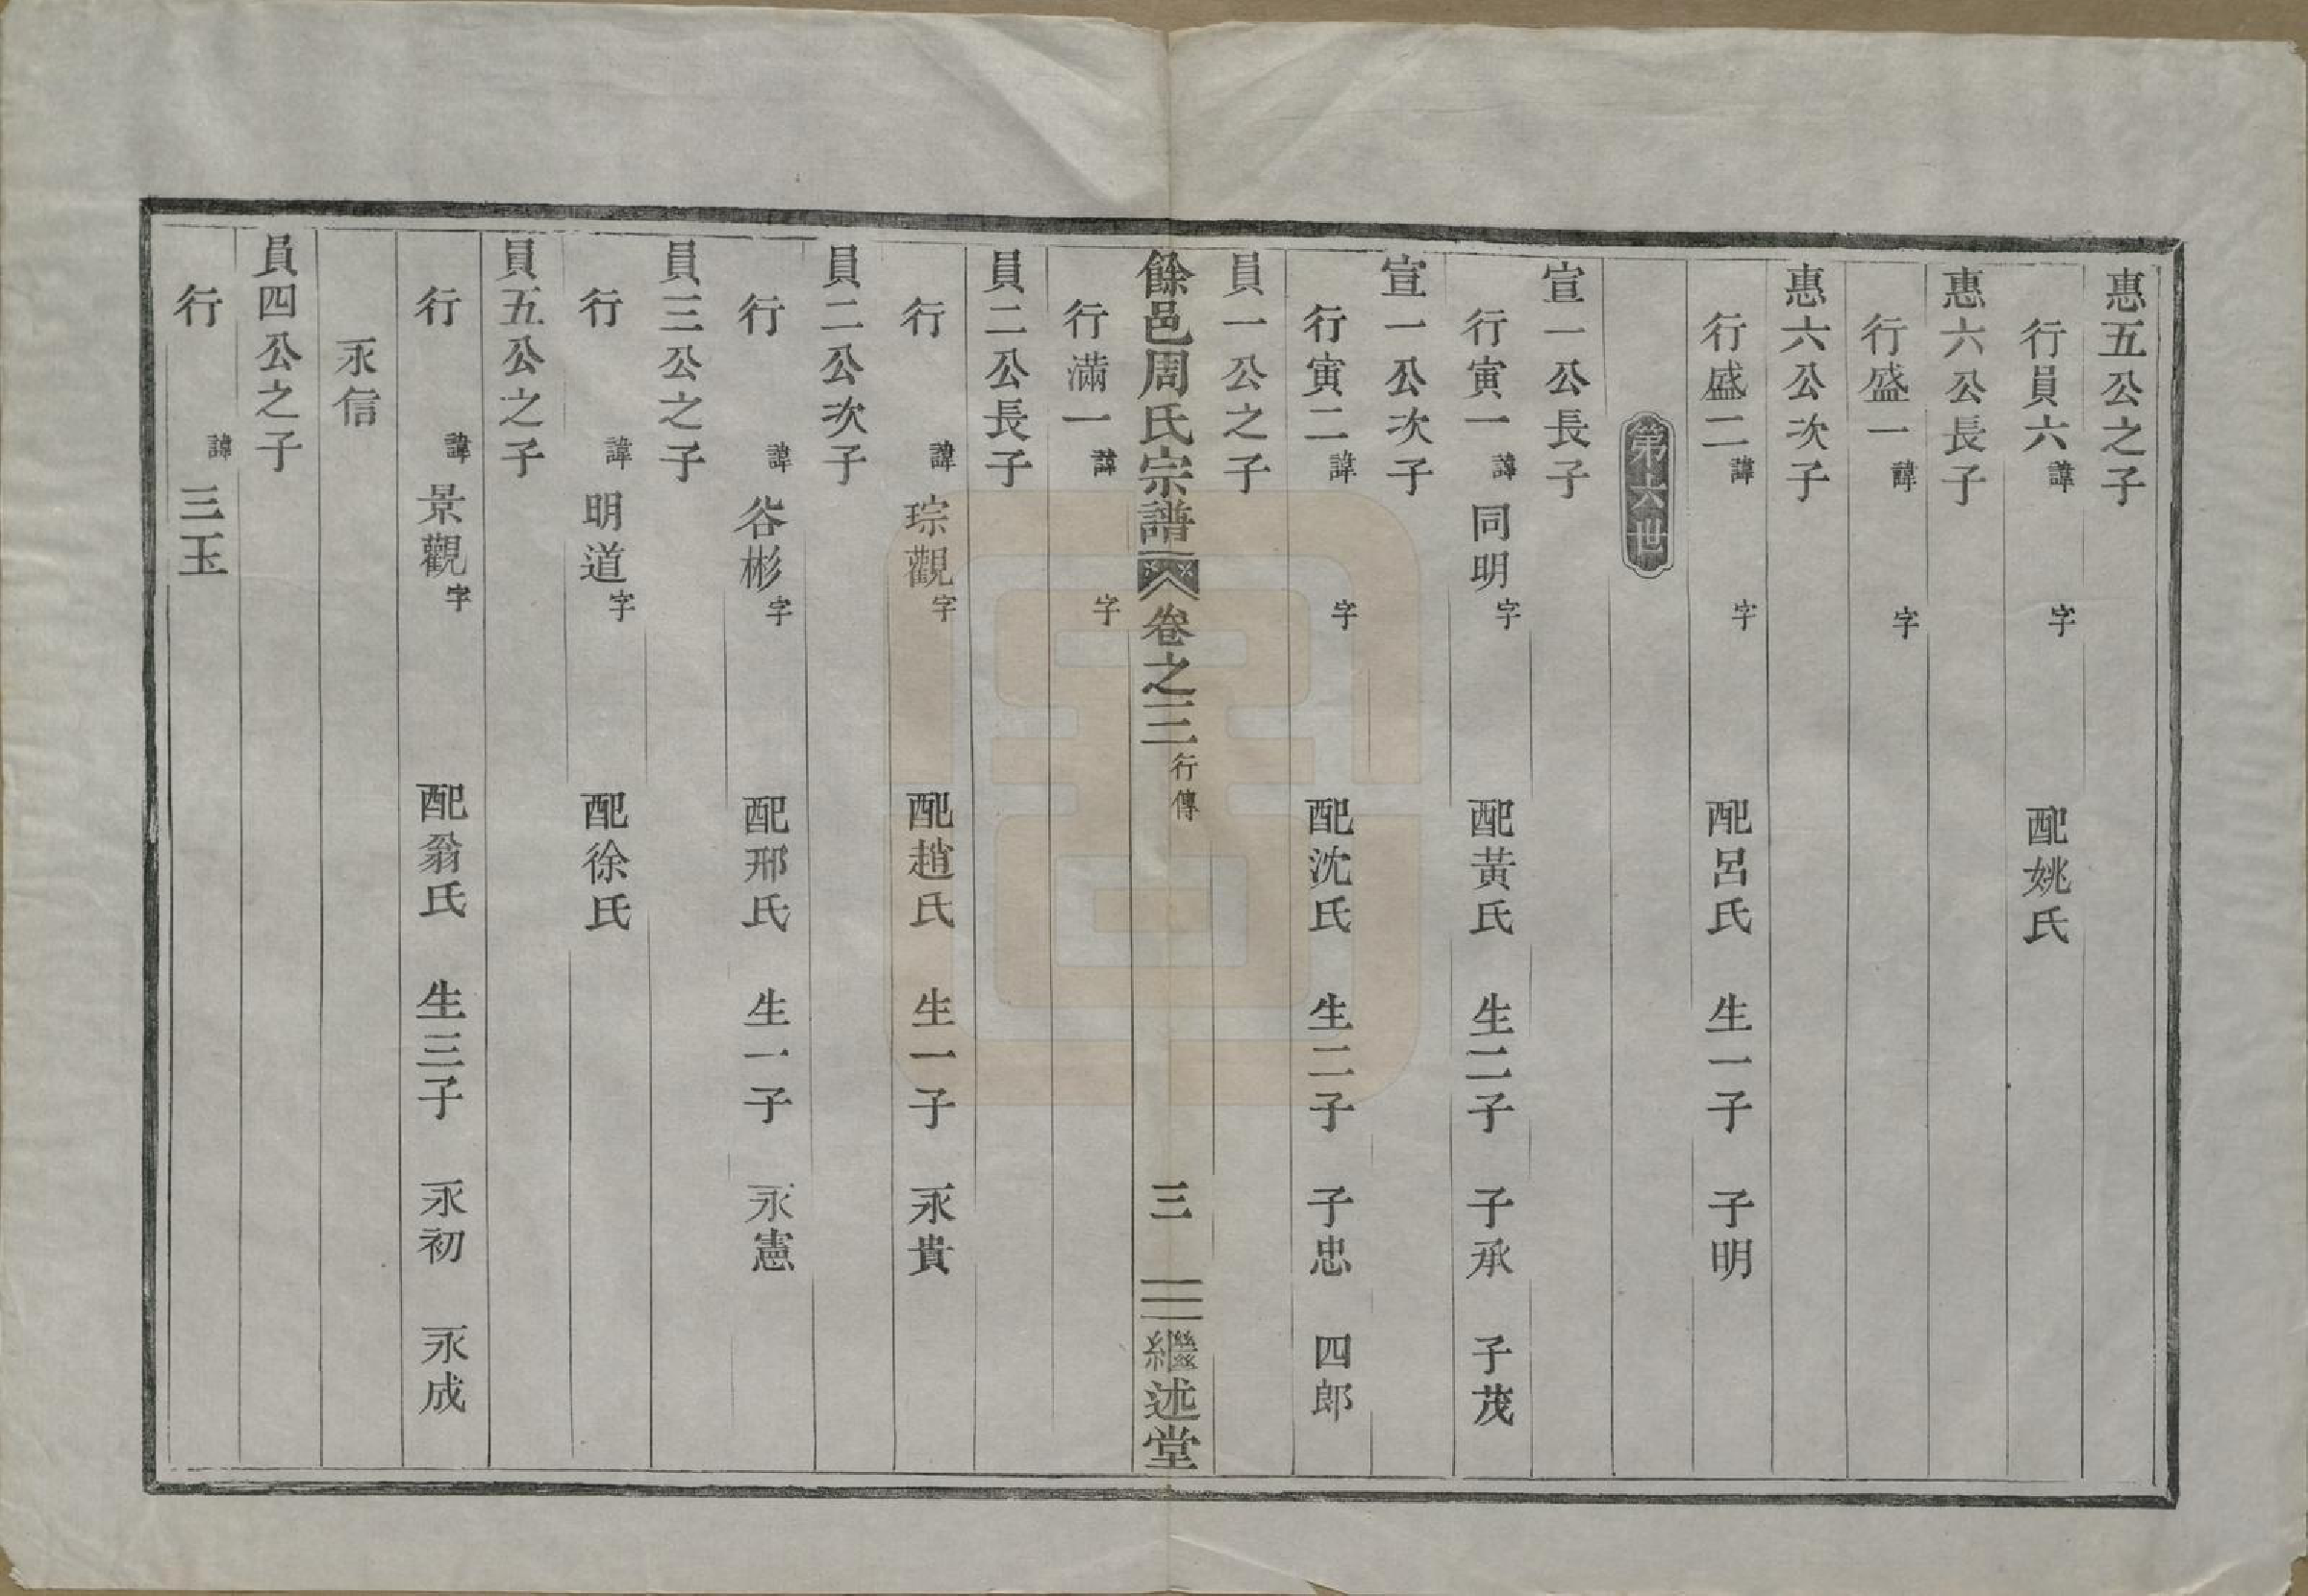 惠五公之子
行員六諱　字　配姚氏
惠六公長子
行盛一諱　字
惠六公次子
行盛二諱　字　配呂氏　生一子　子明
第六世
宣一公長子
行寅一諱同明字　配黃氏　生二子　子承　子茂
宣一公次子
行寅二諱　字　配沈氏　生二子　子忠　四郎
員一公之子
行滿一諱　字
餘邑周氏宗譜　卷之三　行傳　三　繼述堂
員二公長子
行　諱琮觀字　配趙氏　生一子　永貴
員二公次子
行　諱谷彬字　配邢氏　生一子　永憲
員三公之子
行　諱明道字　配徐氏
員五公之子
行　諱景觀字　配翁氏　生三子　永初　永成
永信
員四公之子
行　諱三玉